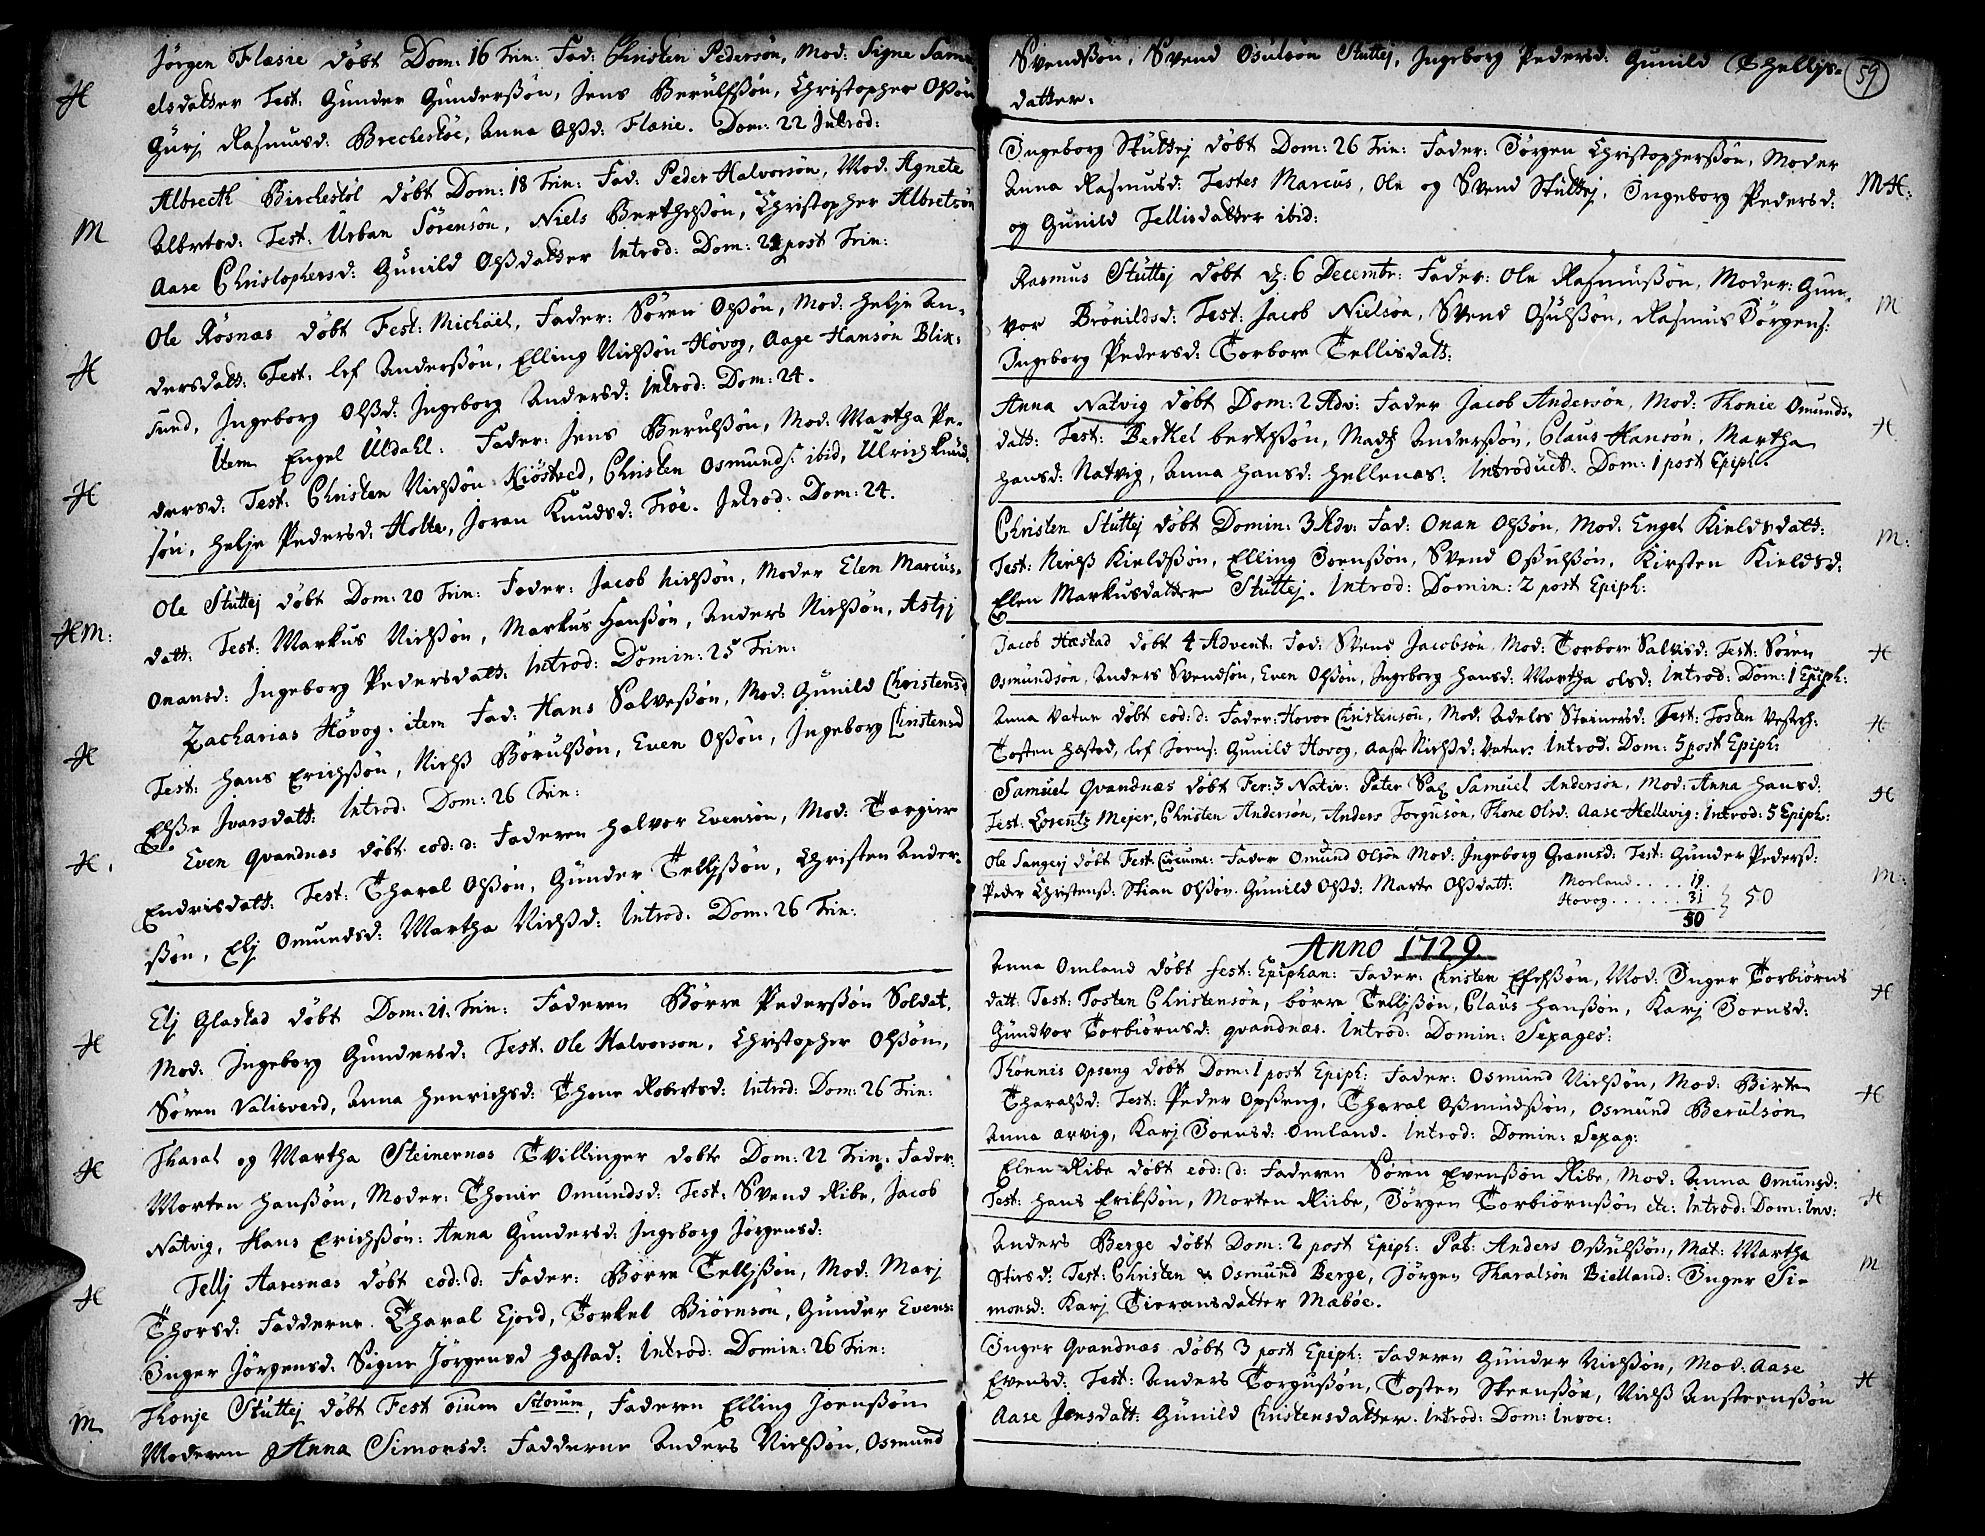 Jörgen Flasie döbt Dom: 16 Trin: Fad: Christen Pedersön, Mod: Signe Sam-
H
elsdatter Test: Gunder Gunderßön, Jens Berülfßön, Christopher Olßön
Gurj Rasmusd: Brechestöe, Anna Olßd: Flasie. Dom: 22 Introd:
Albrecth Birchestöl döbt Dom: 18 Trin: Fad: Peder Halvorsön, Mod: Agnete
M
Albrtsd: Test: Urban Sörensön, Niels Berthelßön, Christopher Albretsön
Aase Christophersd: Gunild Olßdatter Introd: Dom: 24 post Trin:
Ole Rösnas döbt Fest: Michaël, Fader: Sören Olßön, Mod: Helje An-
H
dersdatt: Test: Lef Anderßön, Elling Nielßön Hövog, Aage Hansön Blix-
sund, Ingeborg Olßd: Ingeborg Andersd: Introd: Dom: 24.
Item Engel Uldahl. Fader: Jens Berulßön, Mod: Martha Pe-
H
dersd: Test: Christen Nielßön Kiöstved, Christen Osmunds: ibid, Ulrich Knud-
sön, Helje Pedersd: Holte, Joran Knudsd: Tröe. Introd: Dom: 24.
Ole Stuttej döbt Dom: 20 Trin: Fader: Jacob Nielßön, Moder Elen Marcus-
HM:
datt: Test: Markus Nielßön, Markus Hanßön, Anders Nielßön, Astrj
Onansd: Ingeborg Pedersdatt: Introd: Domin: 25 Trin:
Zacharias Hövog. item Fad: Hans Salveßön, Mod: Gunild Christensd
H
Test: Hans Erichßön, Nielß Börulßön, Even Olßön, Ingeborg Christensd
Elße Ivarsdatt: Introd: Dom: 26 Trin:
Even Qvandnas döbt eod: d: Faderen Halvor Evensön, Mod: Torgier
H.
Endrisdatt: Test: Tharal Olßön, Gunder Telljßön, Christen Ander-
ßön, Elj Omundsd: Martha Nielßd: Introd: Dom: 26 Trin:
Elj Glastad döbt Dom: 21. Trin: Faderen Börre Pederßön Soldat,
H
Mod: Ingeborg Gundersd: Test: Ole Halvorson, Christopher Olßön,
Sören Valisverd, Anna Henrichsd: Thone Robertsd: Introd: Dom: 26 Trin:
Tharal og Martha Steinernas Tvillinger döbte Dom: 22 Trin: Fader:
H
Morten Hanßön, Moder: Thonie Omundsd: Test: Svend Ribe, Jacob
Natvig, Hans Erichßön: Anna Gundersd: Ingeborg Jörgensd:
Tellj Aaresnas döbt eod: d: Fader: Börre Telljßön, Mod: Marj
H
Thorsd: Fadderne. Tharal Ejord, Torkel Biörnsön, Gunder Evens:
Inger Jörgensd: Signe Jörgensd Hæstad: Introd: Domin: 26 Trin:
Thonje Stuttej döbt Fest oium Storum, Faderen Elling Joenßön
M
Moderen Anna Simonsd: Fadderne Anders Nielßön, Osmund
59
Svendßön, Svend Osulsön Stuttej, Ingeborg Pedersd: Gunild Thelljs-
datter.
Ingeborg Stuttej döbt Dom: 26 Trin: Fader: Jörgen Christopherßön, Moder
MH:
Anna Rasmusd: Testes Marcus, Ole og Svend Stuttej, Ingeborg Pedersd:
og Gunild Tellisdatter ibid:
Rasmus Stuttej döbt d: 6 Decembr: Fader: Ole Rasmußön, Moder: Gun-
M
vor Brönildsd: Test: Jacob Nielsön, Svend Osulßön, Rasmus Jörgens:
Ingeborg Pedersd: Torbore Tellisdatt:
Anna Natvig döbt Dom: 2 Adv: Fader Jacob Andersön, Mod: Thonie Omunds-
H
datt: Test: Berthel bertelßön, Madß Anderßön, Claus Hansön, Martha
Hansd: Natvig, Anna Hansd: Hellenas. Introduct: Dom: 1 post Epiph.
Christen Stuttej döbt Domin: 3 Adv: Fad: Onan Olßön, Mod: Engel Kieldsdatt:
M:
Test: Nielß Kieldßön, Elling Joenßön, Svend Oßulßön, Kirsten Kieldsd:
Elen Markusdatter Stuttej. Introd: Domin: 2 post Epiph:
Jacob Hæstad döbt 4 Advent: Fad: Svend Jacobsön, Mod: Torbore Salvisd: Test: Sören
H
Osmundsön, Anders Svendsön, Even Olßön, Ingeborg Hansd: Martha Olsd: Introd: Dom: 1 Epiph:
Anna Vatne döbt eod: d: Fader: Hovor Christensön, Mod: Adelos Steinersd: Test: Tosten Vestrh:
H
Tosten Hæstad, Lef Joens: Gunild Hovog, Aaße Nielßd: Vatne. Introd: Dom: 5 post Epiph:
Samuel Qvandnæs döbt Fer: 3 Nativ: Pater Sal: Samuel Andersön, Mod: Anna Hansd:
H
Test: Lorentz Mejer, Christen Andersön, Anders Torgusön, Thone Olsd: Aase Hellevig: Introd: 5 Epiph:
Ole Sangerej döbt Fest Circumc: Fader Omund Olsön Mod: Ingeborg Gramsd: Test: Gunder Pederß:
M:
Peder Christenß: Stian Olßön. Gunild Olßd: Marte Olßdatt:
Morland.....19.
Hovog......31 } 50
50
Anno 1729.
Anna Omland döbt fest: Epiphan: Fader: Christen Elefßön, Mod: Inger Torbiörns
H
datt: Test: Tosten Christensön, börre Telljßön, Claus Hanßön, Karj Joensd:
Gundvor Torbiörnsd: qvandnæs. Introd: Domin: Sexages:
Thönnis Opseng döbt Dom: 1 post Epiph: Fader: Osmund Nielßön, Mod: Birte
H
Tharalßd: Test: Peder Opßeng, Tharal Oßmundßön, Osmund Berulsön
Anna arvig, Karj Joensd: Omland. Introd: Domin: Sexag:
Elen Ribe döbt eod: d: Faderen Sören Evenßön Ribe, Mod: Anna Omunsd:
H
Test: Hans Erikßön, Morten Riibe, Jörgen Torbiörnßön etc: Introd: Dom: Inv:
Anders Berge döbt Dom: 2 post Epiph: Pat: Anders Oßulßön, Mat: Martha
M
Stiesd: Test: Christen & Osmund Berge, Jörgen Tharalsön Bielland: Inger Si-
monsd: Karj Tieransdatter Mæböe.
Inger Qvandnæs döbt 3 post Epiph: Faderen Gunder Nielßön, Mod: Aase
H
Evensd: Test: Anders Torgußön, Tosten Steenßön, Nielß Ansteenßön
Aase Jensdatt: Gunild Christensdatter: Introd: Dom: Invoc: